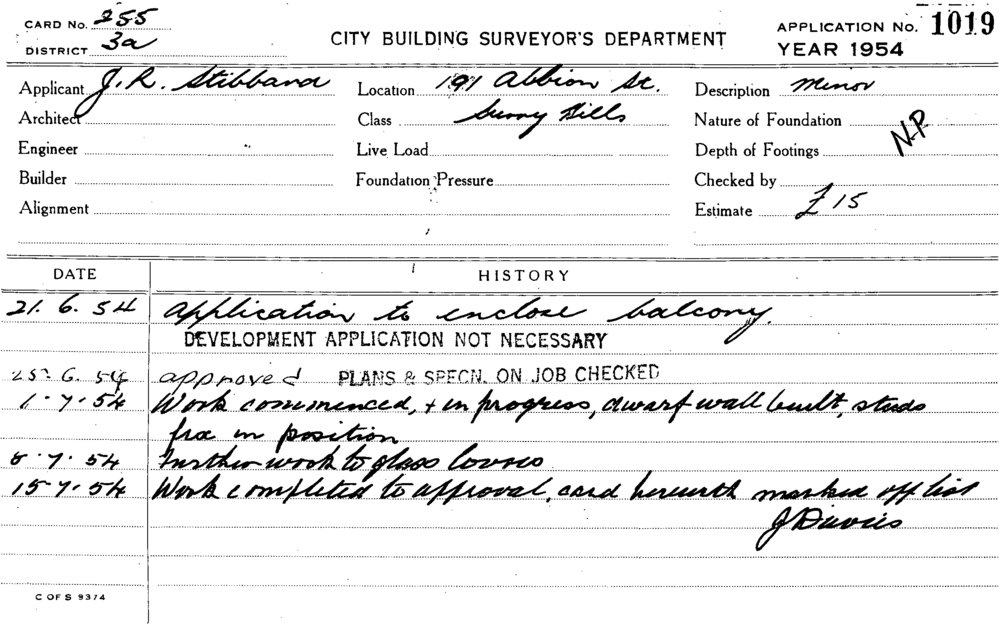 CARD NO. 255
DISTRICT 3a
CITY BUILDING SURVEYOR'S DEPARTMENT
APPLICATION NO. 1019
YEAR 1954
Applicant J. R. Stibband Location 191 Albion St. Description Minor
Architect Class Surry Hills Nature of Foundation N.P.
Engineer Live Load Depth of Footings
Builder Foundation Pressure Checked by
Alignment Estimate £15
DATE HISTORY
21. 6. 54 Application to enclose balcony.
DEVELOPMENT APPLICATION NOT NECESSARY
25. 6. 54 approved PLANS & SPECN. ON JOB CHECKED
1. 7. 54 Work commenced, + in progress, dwarf wall built, studs
fix in position
8. 7. 54 Further work to glass louvres
15. 7. 54 Work completed to approval, card herewith marked off list
J Davies
C OF S 9374